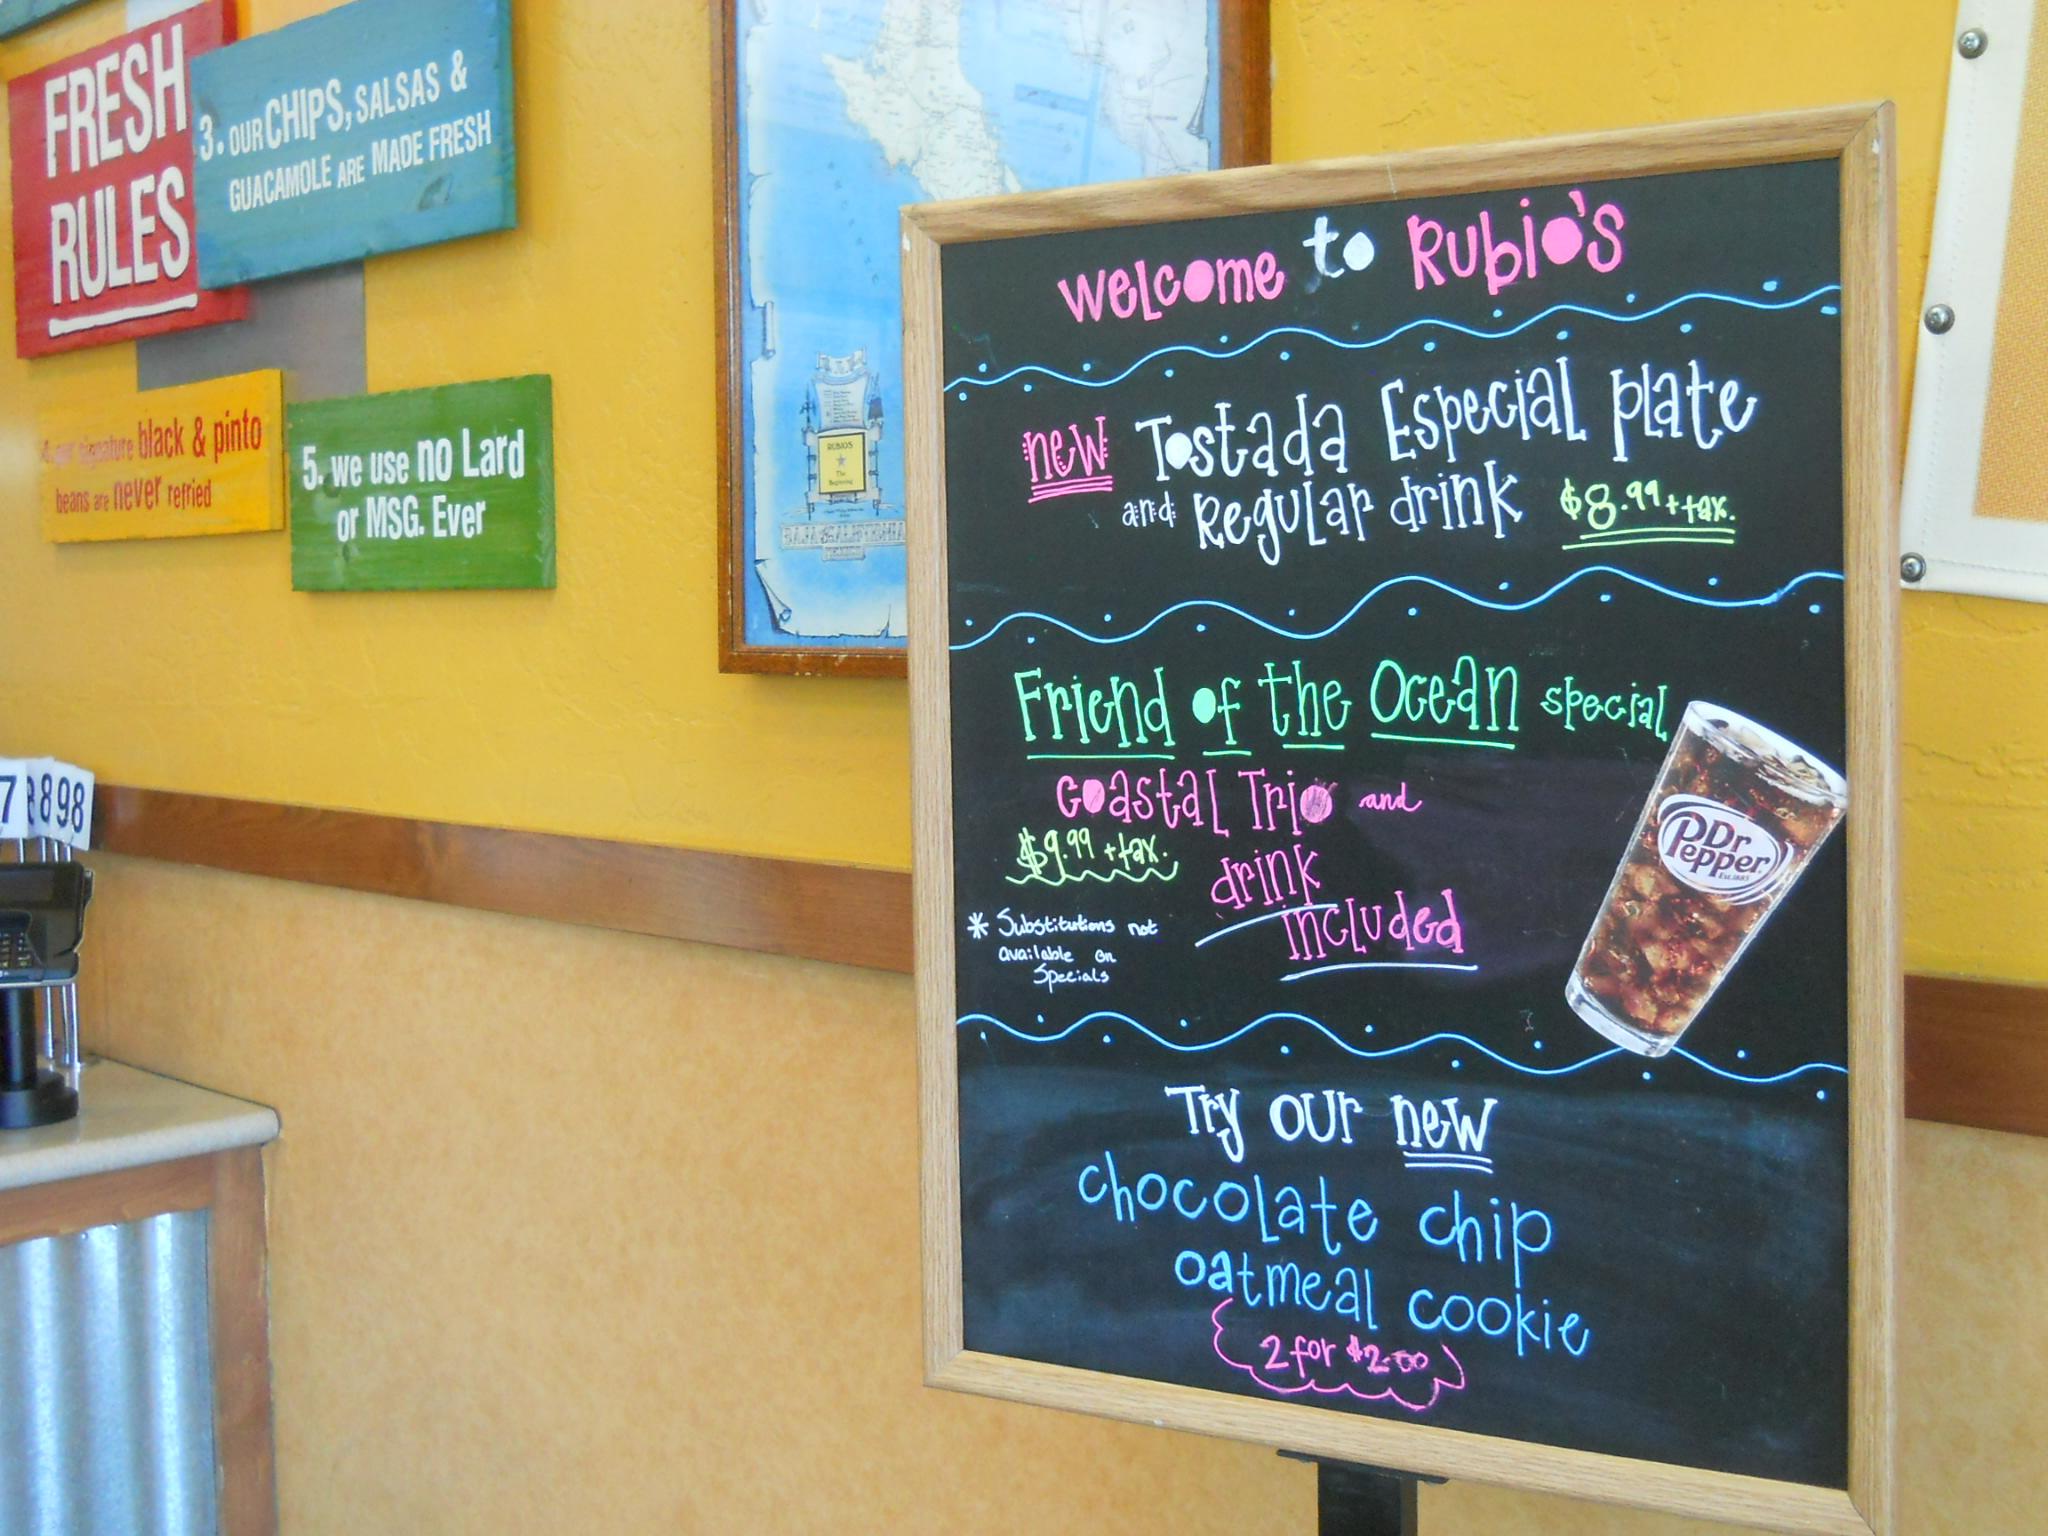 FRESH
RULES
3. OUR CHIPS, SALSAS &
GUACAMOLE ARE MADE FRESH
4. our signature black & pinto
beans are never refried
5. we use no Lard
or MSG. Ever
98
RUBIO'S
The
Beginning
BAJA CALIFORNIA
MEXICO
Welcome to Rubio's
new Tostada Especial plate
and Regular drink $8.99 + tax.
Friend of the Ocean special
Coastal Trio and
$9.99 + tax.
drink
included
* Substitutions not
available on
Specials
Dr
Pepper
Est. 1885
Try our new
chocolate chip
oatmeal cookie
2 for $2.00